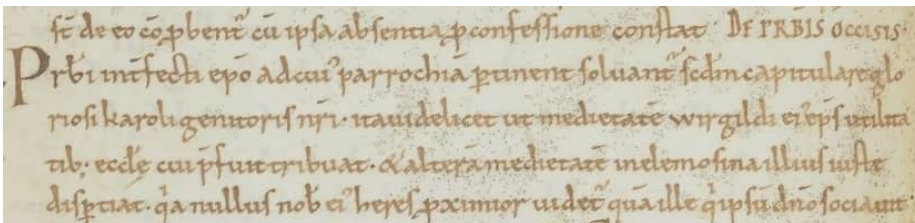 st̄ de eo cōp̱benť cū ipsa absentia ꝓ confessione constat · DE PRBIS OCCISIS·
Prbi int̄fecti ep̄o ad cuiꝰ parrochiā ꝑtinent soluanť scd̄m capitulare glo
riosi karoli genitoris nr̄i · ita uidelicet ut medietatē wirgildi eiꝰ ep̄s utilita
tib; eccłę cui p̄fuit tribuat · & alterā medietatē in elemosina illius iuste
disꝑtiat · q̄a nullus nob̄ eiꝰ heres ꝓximior uideť quā ille q̇ ipsū dn̄o sociauit·